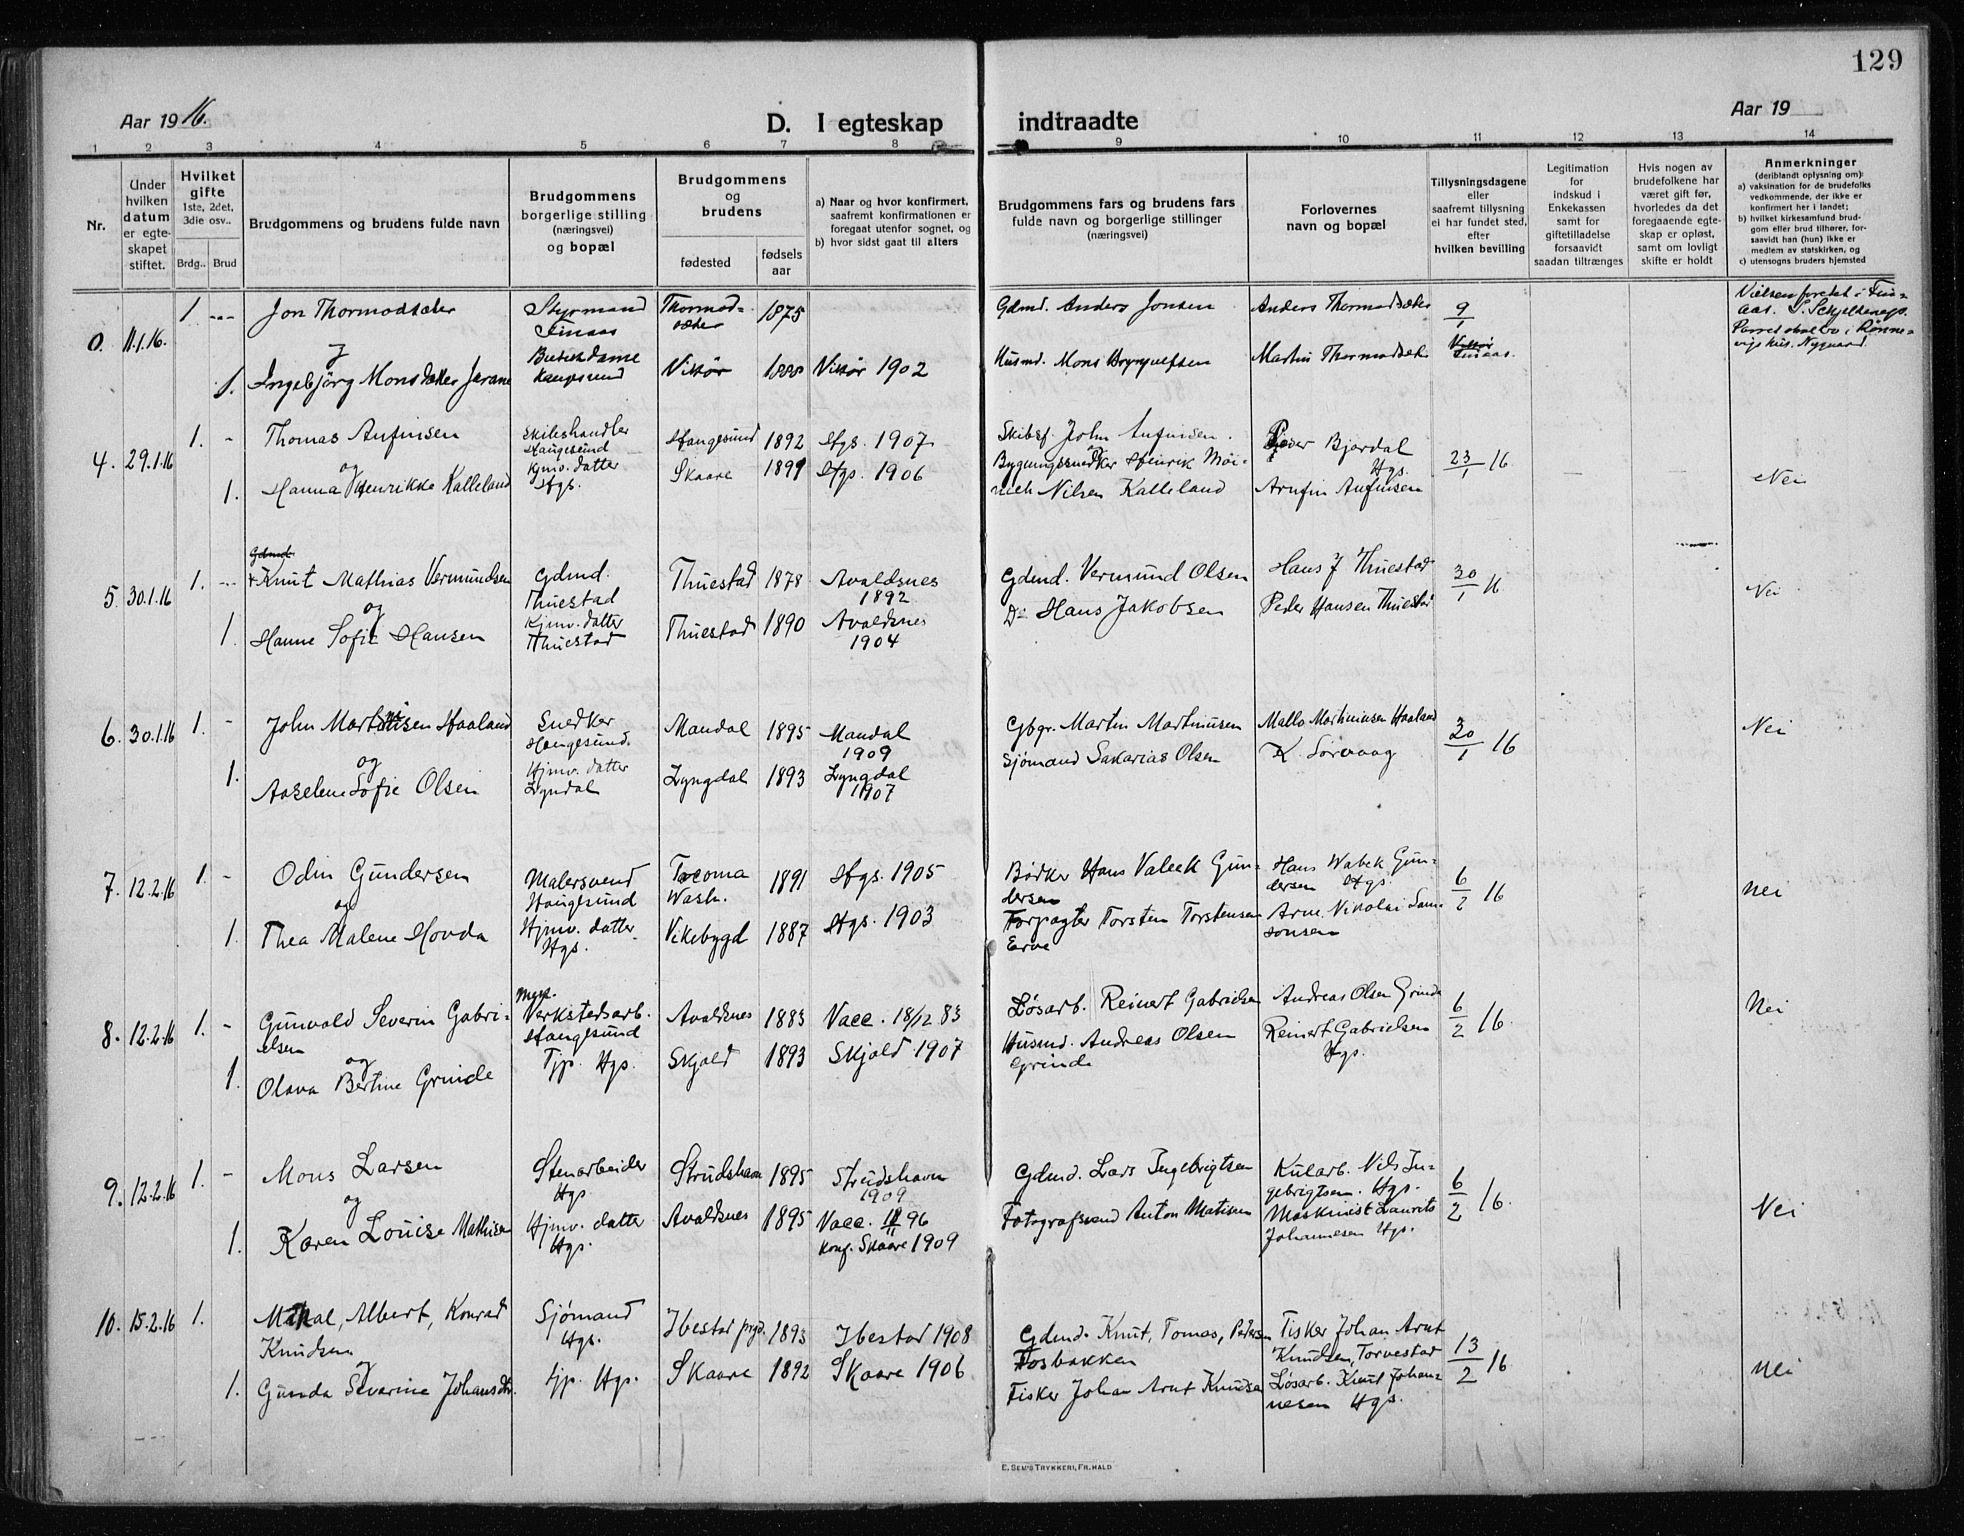 129
Aar 1916.
D. I egteskap indtraadte
Aar 19
1 2 3 4 5 6 7 8 9 10 11 12 13 14
Nr.
Under
hvilken
datum
er egte-
skapet
stiftet.
Hvilket
gifte
1ste, 2det,
3die osv..
Brdg..
Brud
Brudgommens og brudens fulde navn
Brudgommens
borgerlige stilling
(næringsvei)
og bopæl
Brudgommens
og
brudens
fødested
fødsels
aar
a) Naar og hvor konfirmert,
saafremt konfirmationen er
foregaat utenfor sognet, og
b) hvor sidst gaat til alters
Brudgommens fars og brudens fars
fulde navn og borgerlige stillinger
(næringsvei)
Forlovernes
navn og bopæl
Tillysningsdagene
eller
saafremt tillysning
ei har fundet sted,
efter
hvilken bevilling
Legitimation
for
indskud i
Enkekassen
samt for
giftetilladelse
forsaavidt
saadan tiltrænges
Hvis nogen av
brudefolkene har
været gift før,
hvorledes da det
foregaaende egte-
skap er opløst,
samt om lovligt
skifte er holdt
Anmerkninger
(deriblandt oplysning om):
a) vaksination for de brudefolks
vedkommende, der ikke er
konfirmert her i landet;
b) hvilket kirkesamfund brud-
gom eller brud tilhører, for-
saavidt han (hun) ikke er
medlem av statskirken, og
c) utensogns bruders hjemsted
0. 11.1.16. 1 Jon Thormodsæter
og
1. Ingebjörg Monsdatter
Styrmand
Finaas
Haugesund
Thormod-
sæter 1875
Vikör 1888 Vikör 1902
Gdmd. Anders Jonsen
Husmd. Mons Brynjulfsen
Anders Thormodsæter
Martin Thormodsæter
9/1
Finaas.
Vielsen foretat i Fin-
aas.
4. 29.1.16 1. - Thomas Anfinsen
og
1. Hanna Henrikke Kalleland
Skibshandler
Haugesund
Hjmv. datter
Hgs.
Haugesund 1892 Hgs. 1907
Skaare 1891 Hgs. 1906
Skibsf. John Anfinsen.
Bygningssnedker Henrik Møi-
nich Nilsen Kalleland
Peder Bjordal
Hgs.
Arnfin Anfinsen
23/1 16 Nei
5. 30.1.16 1. Gdmd.
Knut Mathias Vermundsen
og
1. Hanne Sofie Hansen
Gdmd.
Thuestad
Hjmv. datter
Thuestad
Thuestad 1878 Avaldsnes
1892
Thuestad 1890 Avaldsnes
1904
Gdmd. Vermund Olsen
Do Hans Jakobsen
Hans J Thuestad
Peder Hansen Thuestad
30/1 16 Nei
6. 30.1.16 1. - John Martinsen Haaland
og
1. Aaselene Sofie Olsen
Snedker
Haugesund.
Hjmv. datter
Lyndal
Mandal 1895 Mandal
1909
Lyngdal 1893 Lyngdal
1907
Gbgr. Martin Martinusen
Sjömand Sakarias Olsen
Malla Martinusen Haaland
K Sørvaag
30/1 16 Nei
7. 12.2.16 1. - Odin Gundersen
og
1. Thea Malene Hovda
Malersvend
Haugesund
Hjmv. datter
Hgs.
Tacoma
Wash. 1891 Hgs. 1905
Vikebygd 1887 Hgs. 1903
Bødker Hans Valeck Gun-
dersen
Forpagter Torsten Torstensen
Erve
Hans Wabek Gun-
dersen Hgs.
Arne Nikolai Sam-
sonsen
6/2 16 nei
8. 12.2.16 1. - Gunvald Severin Gabri-
elsen
og
1. Olava Bertine Grinde
Verkstedsarb.
Haugesund
Tjp. Hgs.
Avaldsnes 1883 Vacc. 18/12 83
Skjold 1893 Skjold 1907
Løsarb. Reinert Gabrielsen
Husmd. Andreas Olsen
Grinde
Andreas Olsen Grinde
Reinert Gabrielsen
Hgs.
6/2 16. Nei
9. 12.2.16 1. - Mons Larsen
og
1. Karen Louise Mathisen
Stenarbeider
Hgs.
Hjmv. datter
Hgs.
Strudshavn 1895 Strudshavn
1909
Avaldsnes 1895 Vacc. 96
Konf. Skaare 1909
Gdmd. Lars Ingebrigtsen
Fotografsvend Anton Matisen
Kularb. Nils In-
gebrigtsen. Hgs.
Maskinist Laurits
Johannesen Hgs.
6/2 16. Nei
10. 15.2.16 1. Mikal, Albert, Konrad
Knudsen
og
1. Gunda Severine Johansdtr.
Sjømand
Hgs.
Tjp. Hgs.
Ibestad prgd. 1893 Ibestad 1908
Skaare 1892 Skaare 1906
Gdmd. Knut, Tomas, Pedersen
Fosbakken
Fisker Johan Arnt Knudsen
Fisker Johan Arnt
Knudsen, Torvestad
Løsarb. Knut Johan-
nesen Hgs.
13/2 16 nei
E. SEM'S TRYKKERI, FR.HALD